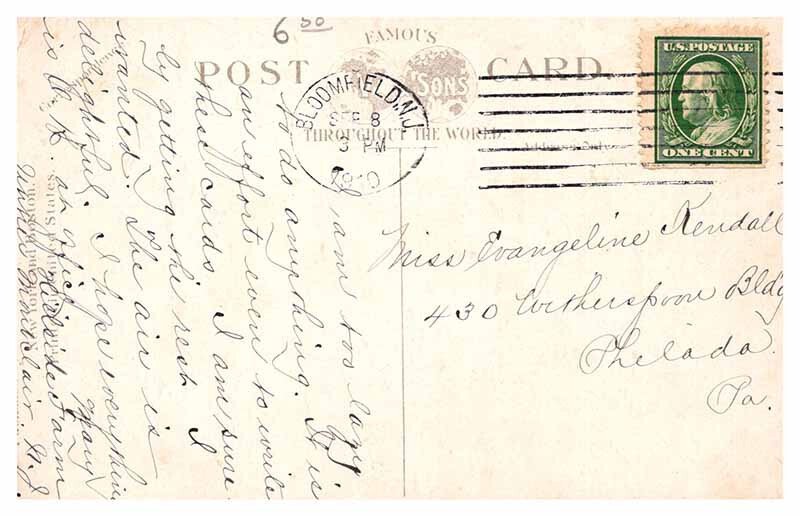 6 50
FAMOUS
POST CARD
"SONS
THROUGHOUT THE WORLD.
U.S. POSTAGE
ONE CENT
BLOOMFIELD, N.J.
SEP 8
PM
1910
I am too lazy
to do anything. It is
an effort even to write
these cards. I am sure
ly getting the rest I
wanted. The air is
delightful. I hope everything
is O.K. in office. Mary
Hillside Farm
Upper Montclair. N.J.
New York and Boston.
United States.
Miss Evangeline Kendall
430 Witherspoon Bldg
Philada
Pa.